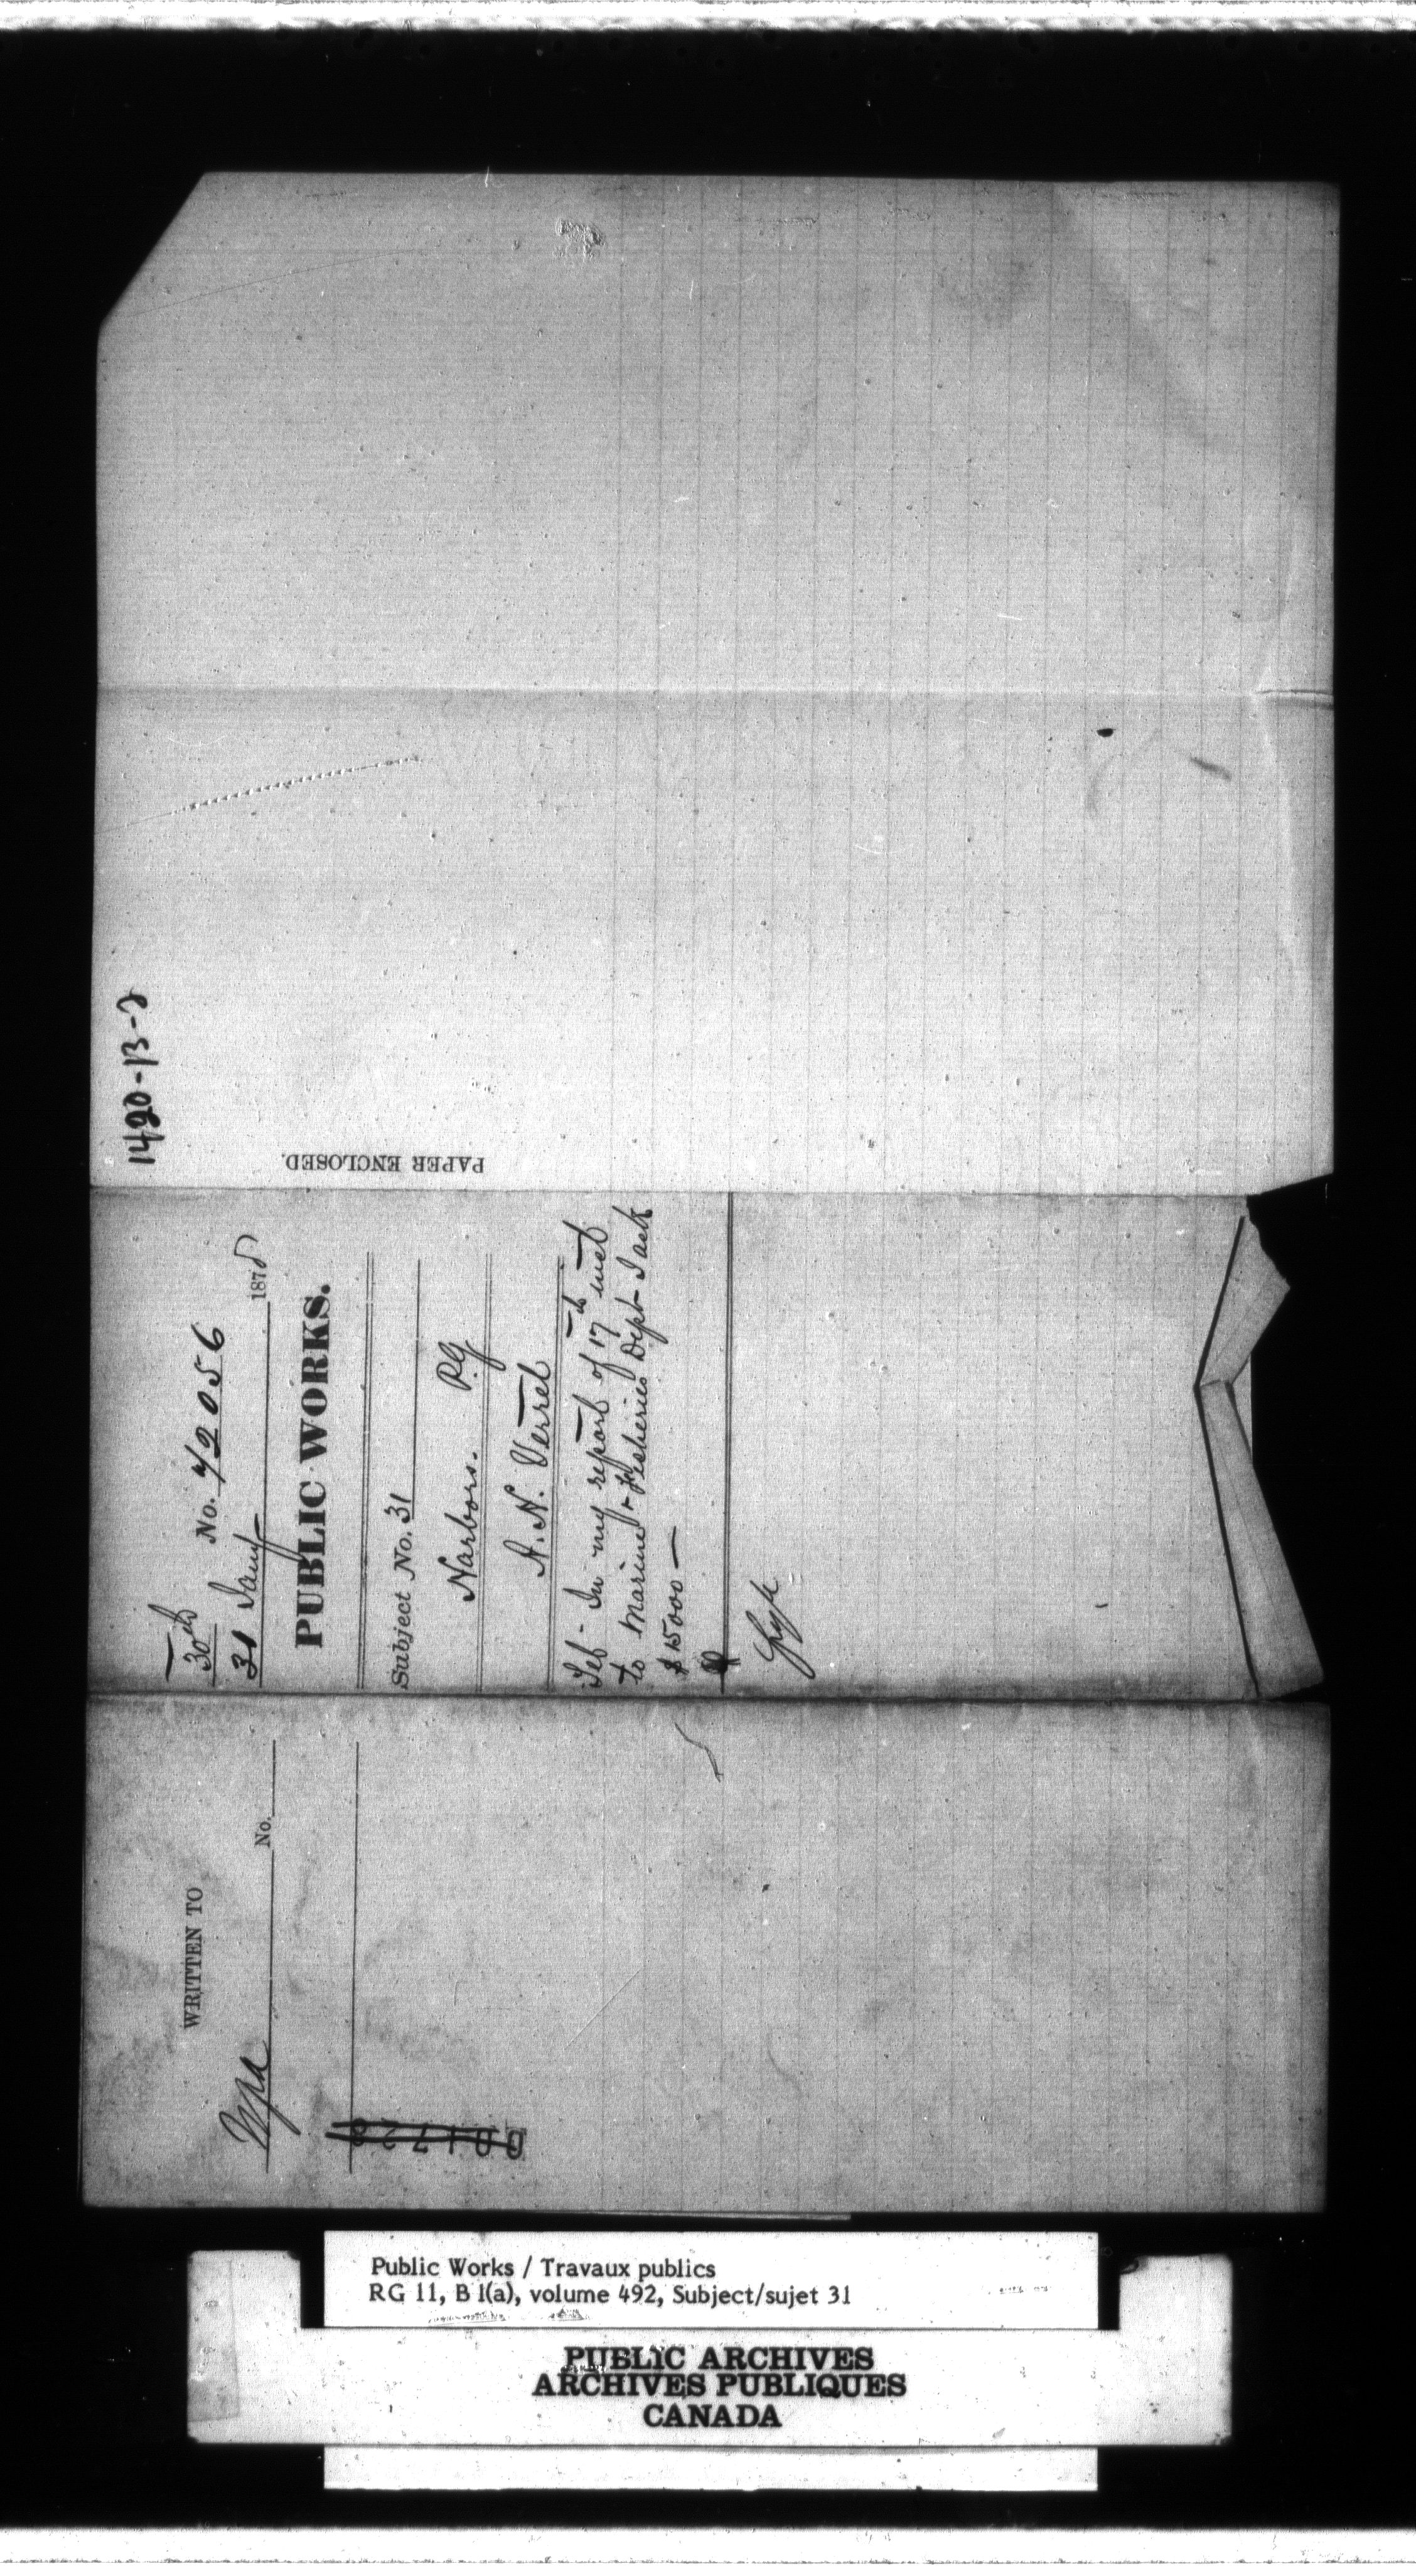 1490-13-2
PAPER ENCLOSED.
30th No. 72056
31 Jany 1878
PUBLIC WORKS.
Subject No. 31
Harbors. P.Q
A. N. Verret
Tel - In my report of 17th inst
to Marine & Fisheries Dept I ask
$15000 —
WRITTEN TO
No.
Public Works / Travaux publics
RG 11, B 1(a), volume 492, Subject/sujet 31
PUBLIC ARCHIVES
ARCHIVES PUBLIQUES
CANADA